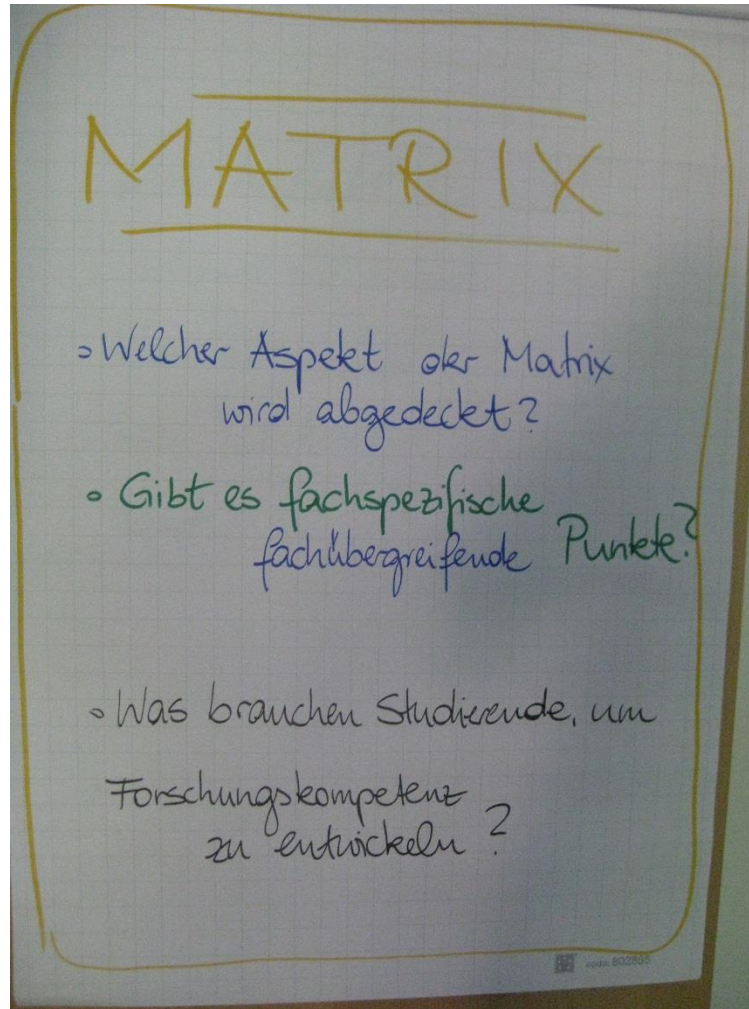 MATRIX
◦ Welcher Aspekt der Matrix
wird abgedeckt?
◦ Gibt es fachspezifische
fachübergreifende Punkte?
◦ Was brauchen Studierende, um
Forschungskompetenz
zu entwickeln?
code: 802855